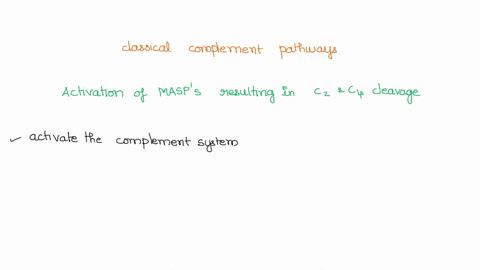 classical complement pathways
Activation of MASP's resulting in C2 & C4 cleavage
✓ activate the complement system